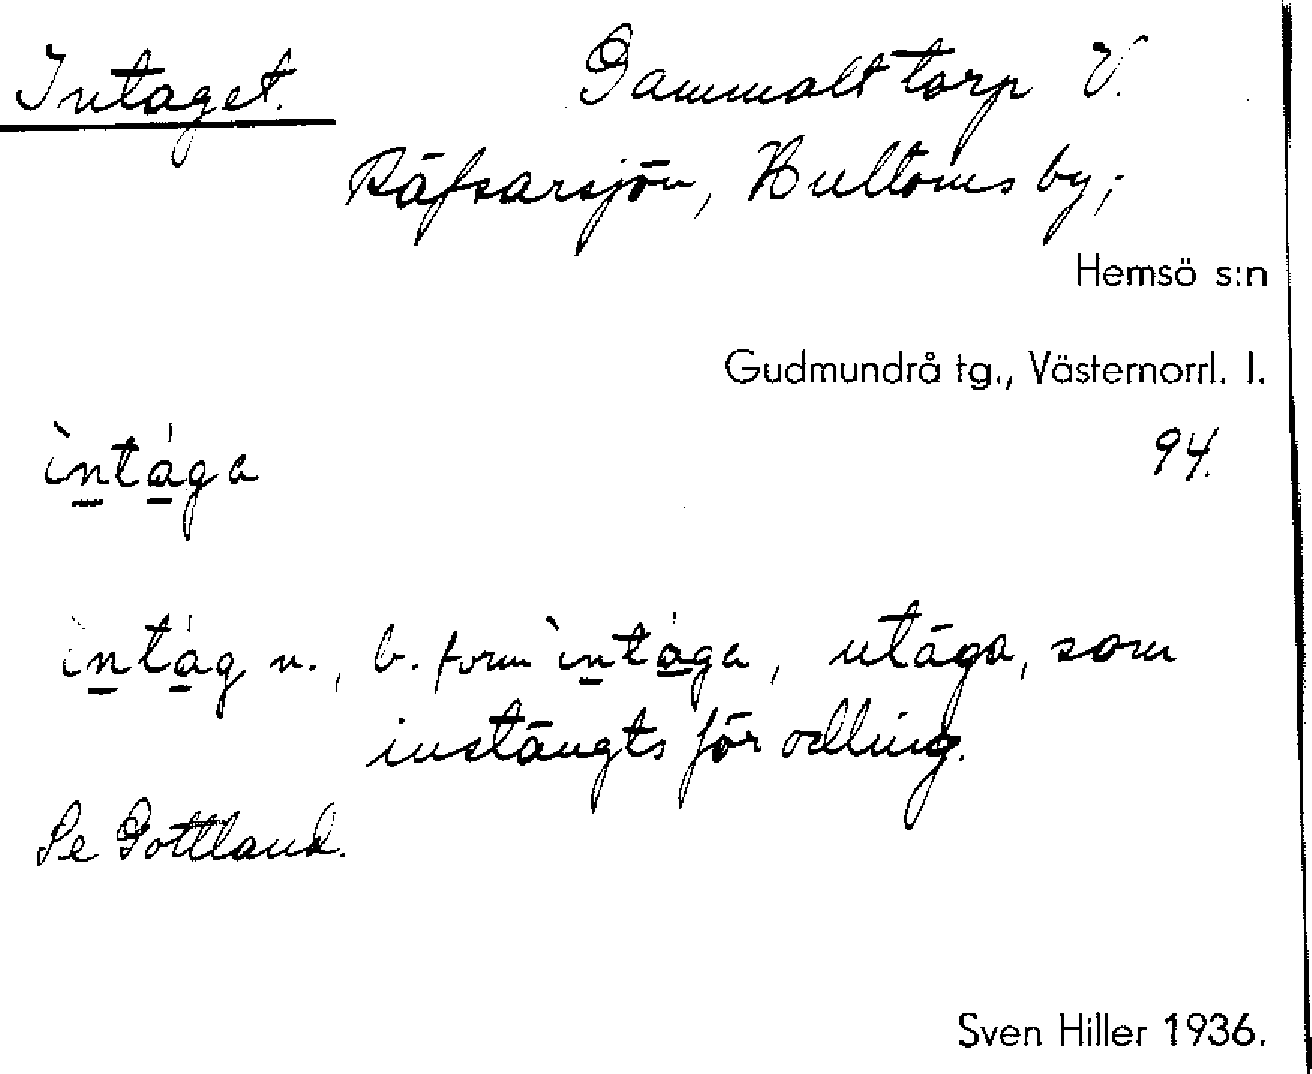 Intaget. Gammalt torp V.
Räfsarsjön, Bultoms by;
Hemsö s:n
Gudmundrå tg., Västernorrl. l.
ìntága 94.
ìntág n., b. form ìntága, utäga, som
instängts för odling.
Se Gottland.
Sven Hiller 1936.